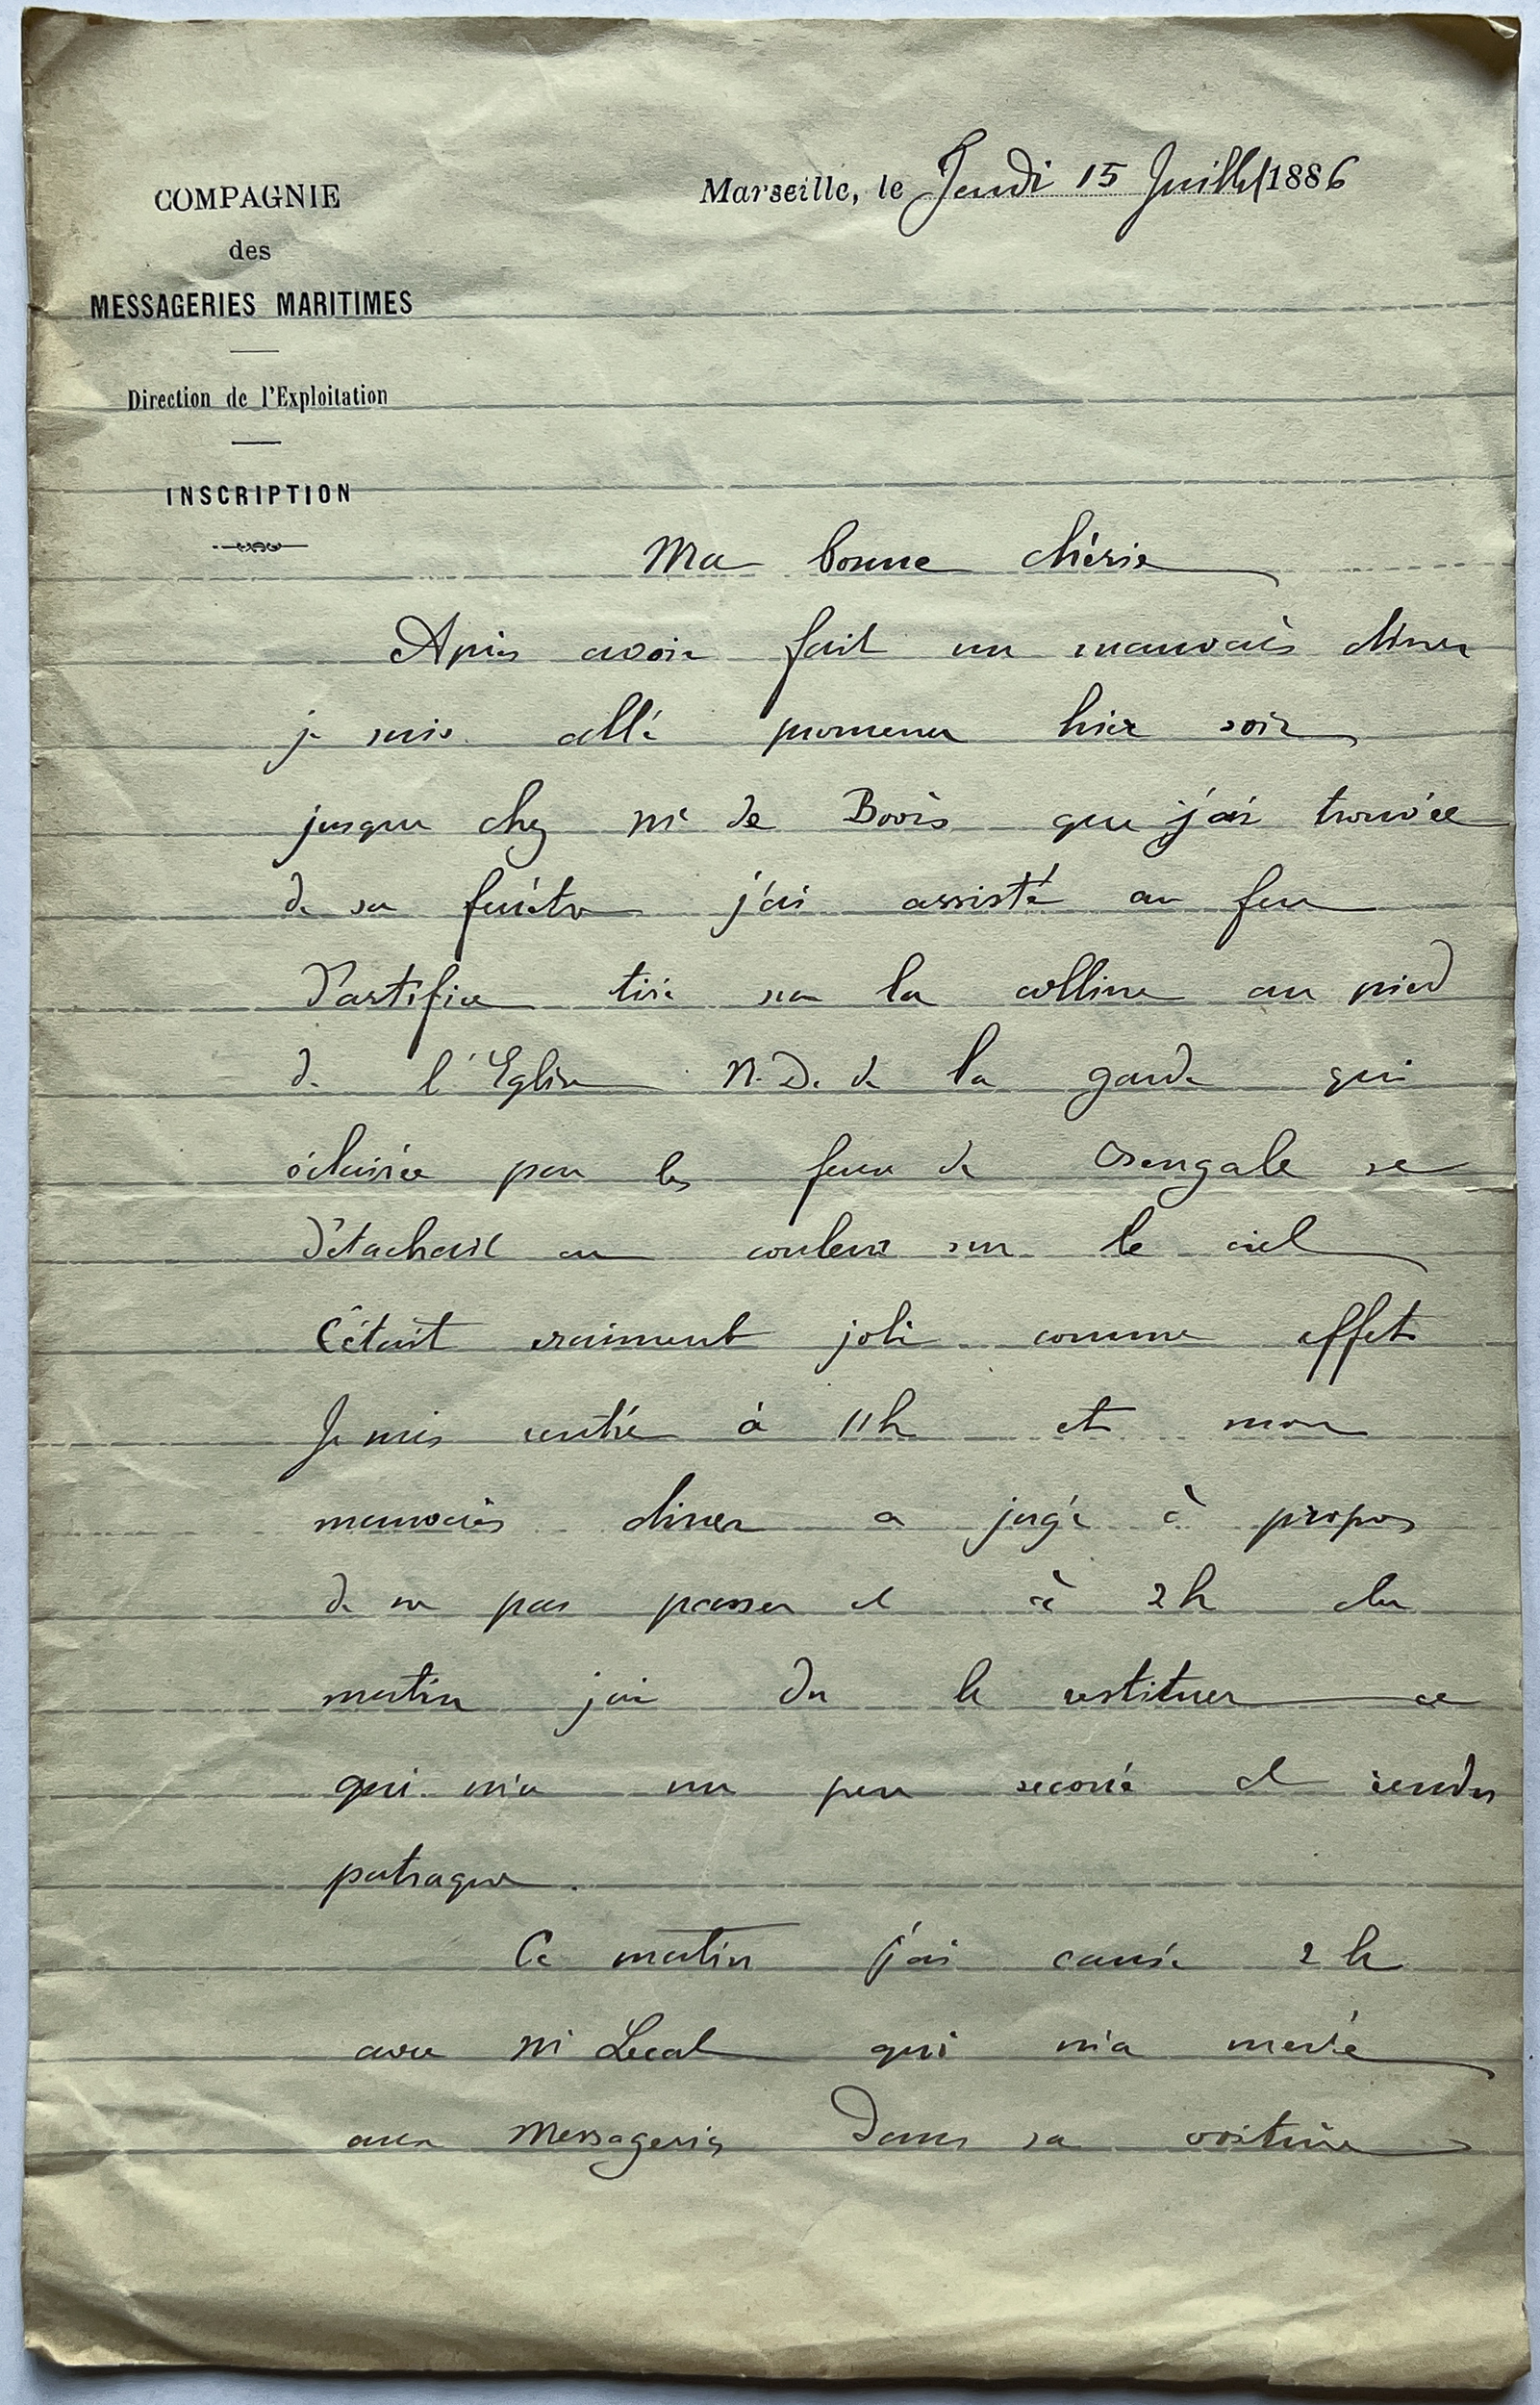 COMPAGNIE
des
MESSAGERIES MARITIMES
Direction de l'Exploitation
INSCRIPTION
Marseille, le Jeudi 15 Juillet 1886
Ma bonne chérie
Après avoir fait un mauvais diner
je suis allé promener hier soir
jusque chez de que j'ai trouvée
de sa fenêtre j'ai assisté au feu
d'artifice tiré sur la colline au pied
de l'Eglise N.D. de la garde qui
éclairée par les feux de Bengale se
détachait en couleur sur le ciel
C'était vraiment joli comme effet
Je suis rentré à 11h et mon
mauvais diner a jugé à propos
de ne pas passer et à 2h du
matin j'ai du le restituer ce
qui m'a un peu secoué et rendu
patraque.
Ce matin j'ai causé 2h
avec Mr Lecat qui m'a mené
aux Messageries dans sa voiture